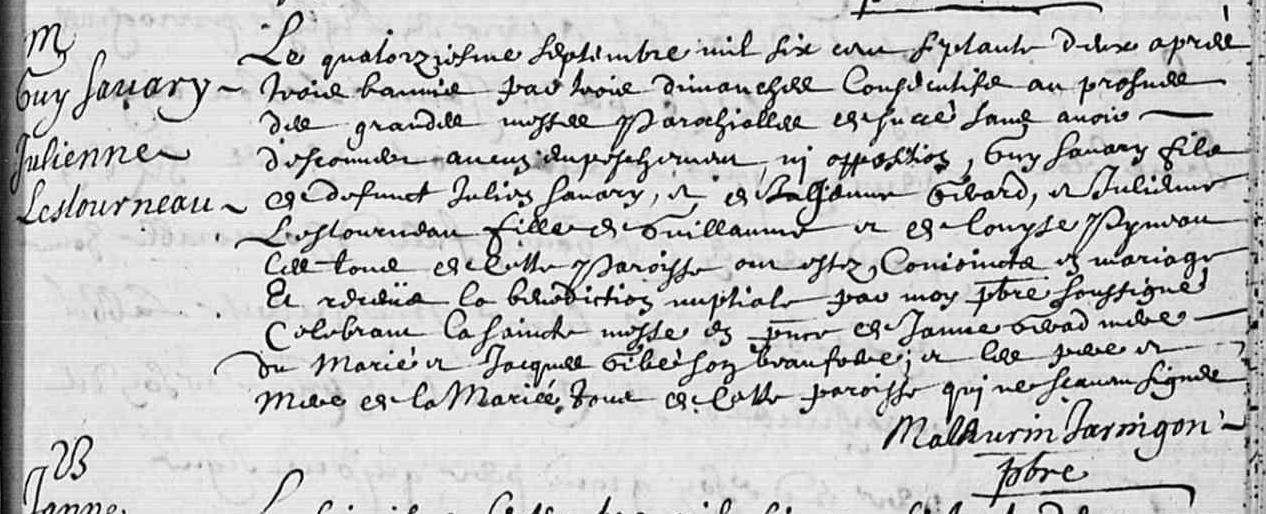 M
Guy Savary
Julienne
Lestourneau
Le quatorziesme septembre mil six cens septante deux apres
trois bannie par trois dimanches Consecutifs au prosnes
des grandes messes Parochialles et sans avoir
descouvert aucun empeschement, ni opposition, Guy Savary fils
de defunct Julien Savary, et de Girard, et Julienne
Lestourneau fille de Guillaume et de Louyse Pyneau
les tous de cette Paroisse ont estez Conioincts en mariage
Et receue la benediction nuptiale par moy pbre soussigné
Celebrant la saincte messe en pnce de Janne Girard mere
du Marié et Jacques son beaufrere; et les pere et
mere de la Mariée tous de cette paroisse qui ne scavent signer
Mathurin Jarnigon
pbre
B
Janne